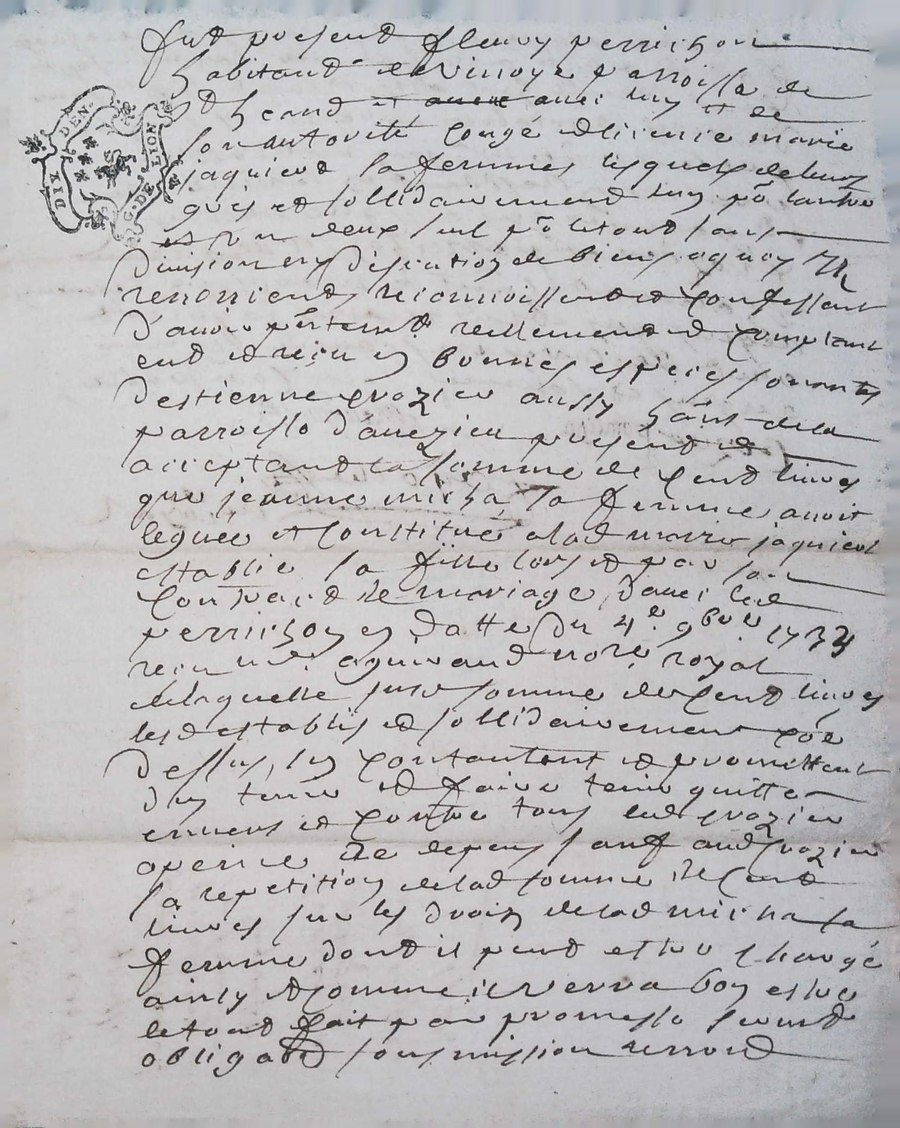 DIX DEN. G. DE LION
fut present fleury perrichon
habitand de Vinoye parroisse de
et avec luy et de
son autorité congé et licence marie
jaquiend sa femmes lesquels de leurs
grés et sollidairement luy po lautre
et un deux seul po letout sans
division ny discution de biens aquoy Ils
renoncients reconnoissent et confessent
d'avoir reellement et comptant
eut et reçu en bonnes especes sonantes
destienne grozier aussy habt de la
parroisse d'aveizieu present et
acceptand la somme de cent livres
que jeanne micha sa femme avoit
leguée et constitué alad marie jaquiend
establie sa fille lors et par son
contract de mariage davec led
perrichon en datte du 4e 9bre 1733
reçu me aguiraud nore royal
delaquelle susd somme de cent livres
lesd establis et sollidairement coe
dessus, sen contantent et promettent
den tenir et faire tenir quitte
envers et contre tous led grozier
apeine de depens sauf aud grozier
sa repetition delad somme de cent
livres sur les droits delad micha sa
femme dont il peut estre chargé
ainsy et comme il verra bon estre
le tout fait par promesse serment
obligaon sousmission renond